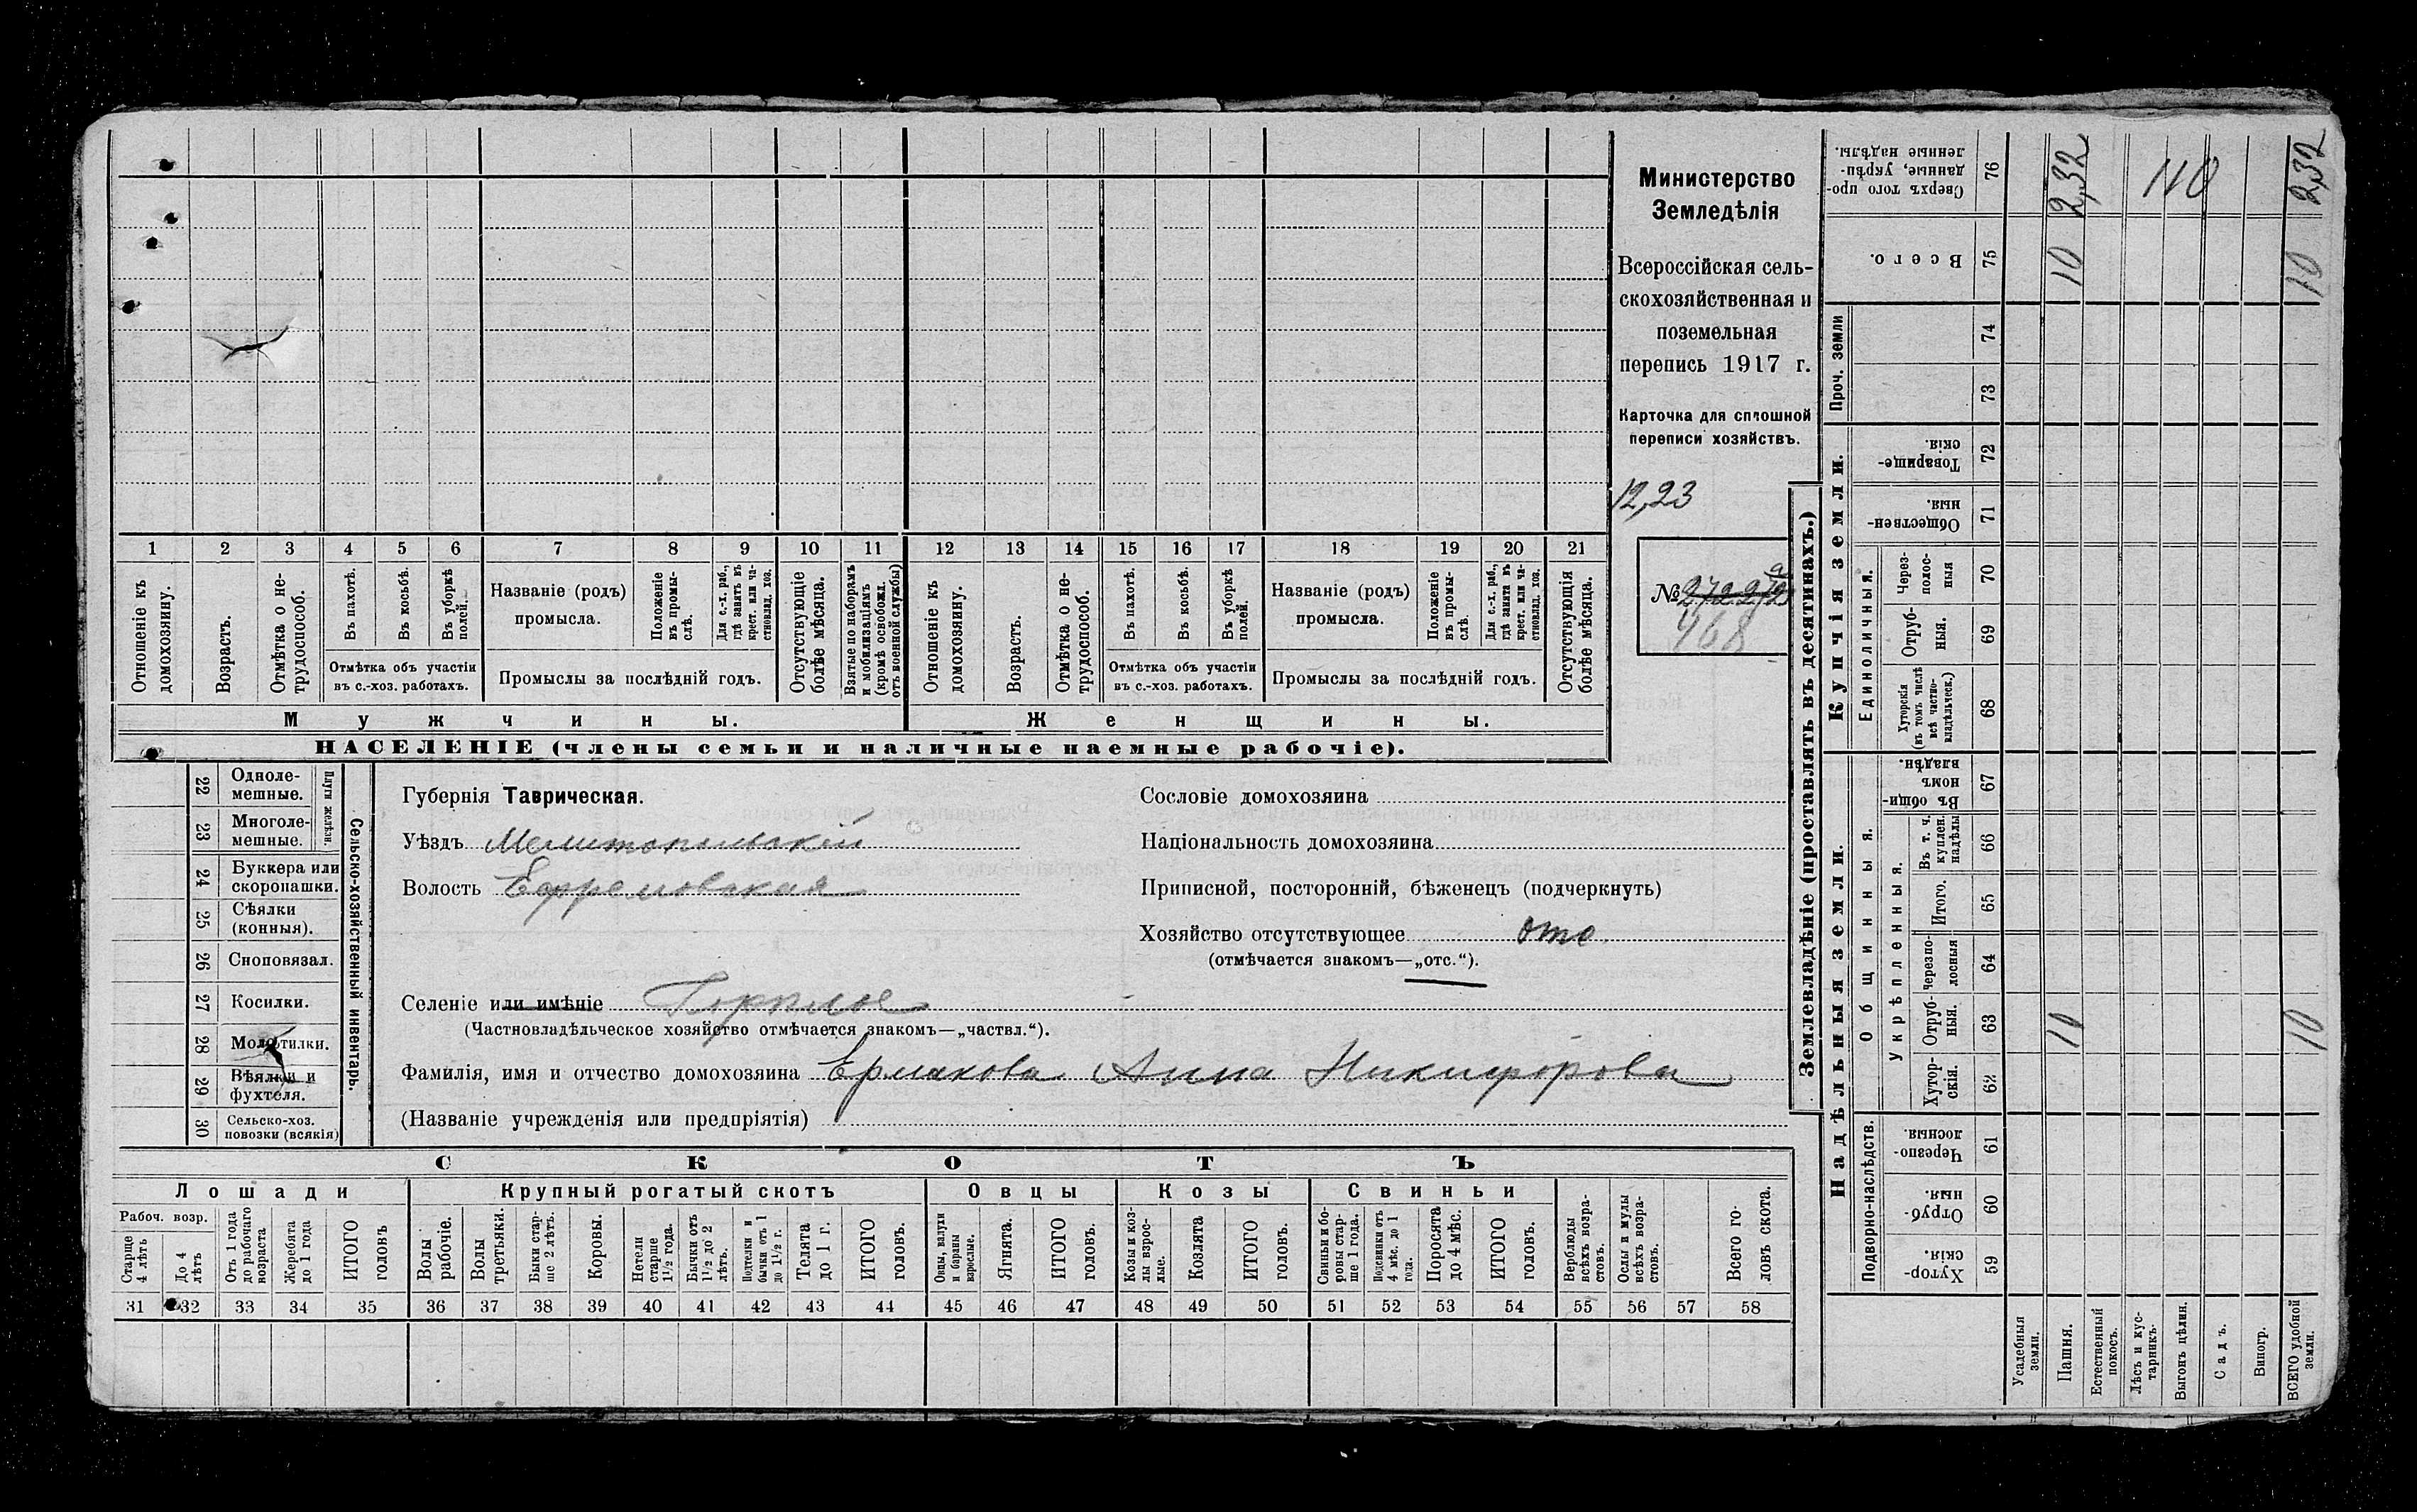 Министерство
Земледѣлія
Всероссійская сель-
скохозяйственная и
поземельная
перепись 1917 г.
Карточка для сплошной
переписи хозяйствъ.
12,23
№ 272
468
1 2 3 4 5 6 7 8 9 10 11 12 13 14 15 16 17 18 19 20 21
Отношеніе къ домохозяину.
Возрастъ.
Отмѣтка о не-трудоспособ.
Въ пахотѣ.
Въ косьбѣ.
Въ уборкѣ полей.
Отмѣтка объ участіи
въ с.-хоз. работахъ.
Названіе (родъ)
промысла.
Положеніе въ промы-слѣ.
Для с.-х. раб., гдѣ занятъ въ крест. или ча-стновлад. хоз.
Промыслы за послѣдній годъ.
Отсутствующіе болѣе мѣсяца.
Взятые по наборамъ и мобилизаціямъ (кромѣ освобожд. отъ военной службы)
Отношеніе къ домохозяину.
Возрастъ.
Отмѣтка о не-трудоспособ.
Въ пахотѣ.
Въ косьбѣ.
Въ уборкѣ полей.
Отмѣтка объ участіи
въ с.-хоз. работахъ.
Названіе (родъ)
промысла.
Положеніе въ промы-слѣ.
Для с.-х. раб., гдѣ занята въ крест. или ча-стновлад. хоз.
Промыслы за послѣдній годъ.
Отсутствующія болѣе мѣсяца.
Мужчины.
Женщины.
НАСЕЛЕНІЕ (члены семьи и наличные наемные рабочіе).
22 Одноле-мешные.
23 Многоле-мешные.
Плуги желѣзн.
24 Буккера или скоропашки.
25 Сѣялки (конныя).
26 Сноповязал.
27 Косилки.
28 Молотилки.
29 Вѣялки и фухтеля.
30 Сельско-хоз. повозки (всякія)
Сельско-хозяйственный инвентарь.
Губернія Таврическая.
Уѣздъ Мелитопольскій
Волость Ефремовская
Селеніе или имѣніе Горѣлое
(Частновладѣльческое хозяйство отмѣчается знакомъ—„частвл.“).
Фамилія, имя и отчество домохозяина Ермакова Анна Никифорова
(Названіе учрежденія или предпріятія)
Сословіе домохозяина
Національность домохозяина
Приписной, посторонній, бѣженецъ (подчеркнуть)
Хозяйство отсутствующее отс.
(отмѣчается знакомъ—„отс.“).
СКОТЪ
Лошади
Крупный рогатый скотъ
Овцы
Козы
Свиньи
Рабоч. возр.
Старше 4 лѣтъ
До 4 лѣтъ
Отъ 1 года до рабочаго возраста
Жеребята до 1 года
ИТОГО головъ
Волы рабочіе.
Волы третьяки.
Быки стар-ше 2 лѣтъ.
Коровы.
Нетели старше 1½ года.
Бычки отъ 1½ до 2 лѣтъ.
Подтелки и бычки отъ 1 до 1½ г.
Телята до 1 г.
ИТОГО головъ.
Овцы, валухи и бараны взрослые.
Ягнята.
ИТОГО головъ.
Козы и коз-лы взрос-лые.
Козлята
ИТОГО головъ.
Свиньи и бо-ровы стар-ше 1 года.
Подсвинки отъ 4 мѣс. до 1 года.
Поросята до 4 мѣс.
ИТОГО головъ.
Верблюды всѣхъ возра-стовъ.
Ослы и мулы всѣхъ возра-стовъ.
Всего го-ловъ скота.
31 32 33 34 35 36 37 38 39 40 41 42 43 44 45 46 47 48 49 50 51 52 53 54 55 56 57 58
Землевладѣніе (проставлять въ десятинахъ.)
Надѣльныя земли.
Купчія земли.
Проч. земли
Подворно-наслѣдств.
Общинныя.
Укрѣпленныя.
Единоличныя.
Хутор-скія. 59
Отруб-ныя. 60
Черезпо-лосныя. 61
Хутор-скія. 62
Отруб-ныя. 63
Черезпо-лосныя 64
Итого. 65
Въ т. ч. куплен. надѣлы 66
Въ общин-номъ владѣн. 67
Хуторскія (въ томъ числѣ всѣ частно-владѣльческ.) 68
Отруб-ныя. 69
Через-полос-ныя 70
Обществен-ныя 71
Товарище-скія. 72
73
74
Всего. 75
Сверхъ того про-данные, укрѣп-ленные надѣлы. 76
Усадебныя земли.
Пашня. 10 10 2,32
Естественный покосъ.
Лѣсъ и кус-тарникъ.
Выгонъ цѣлин.
Садъ.
Виногр.
ВСЕГО удобной земли. 10 10 2,32